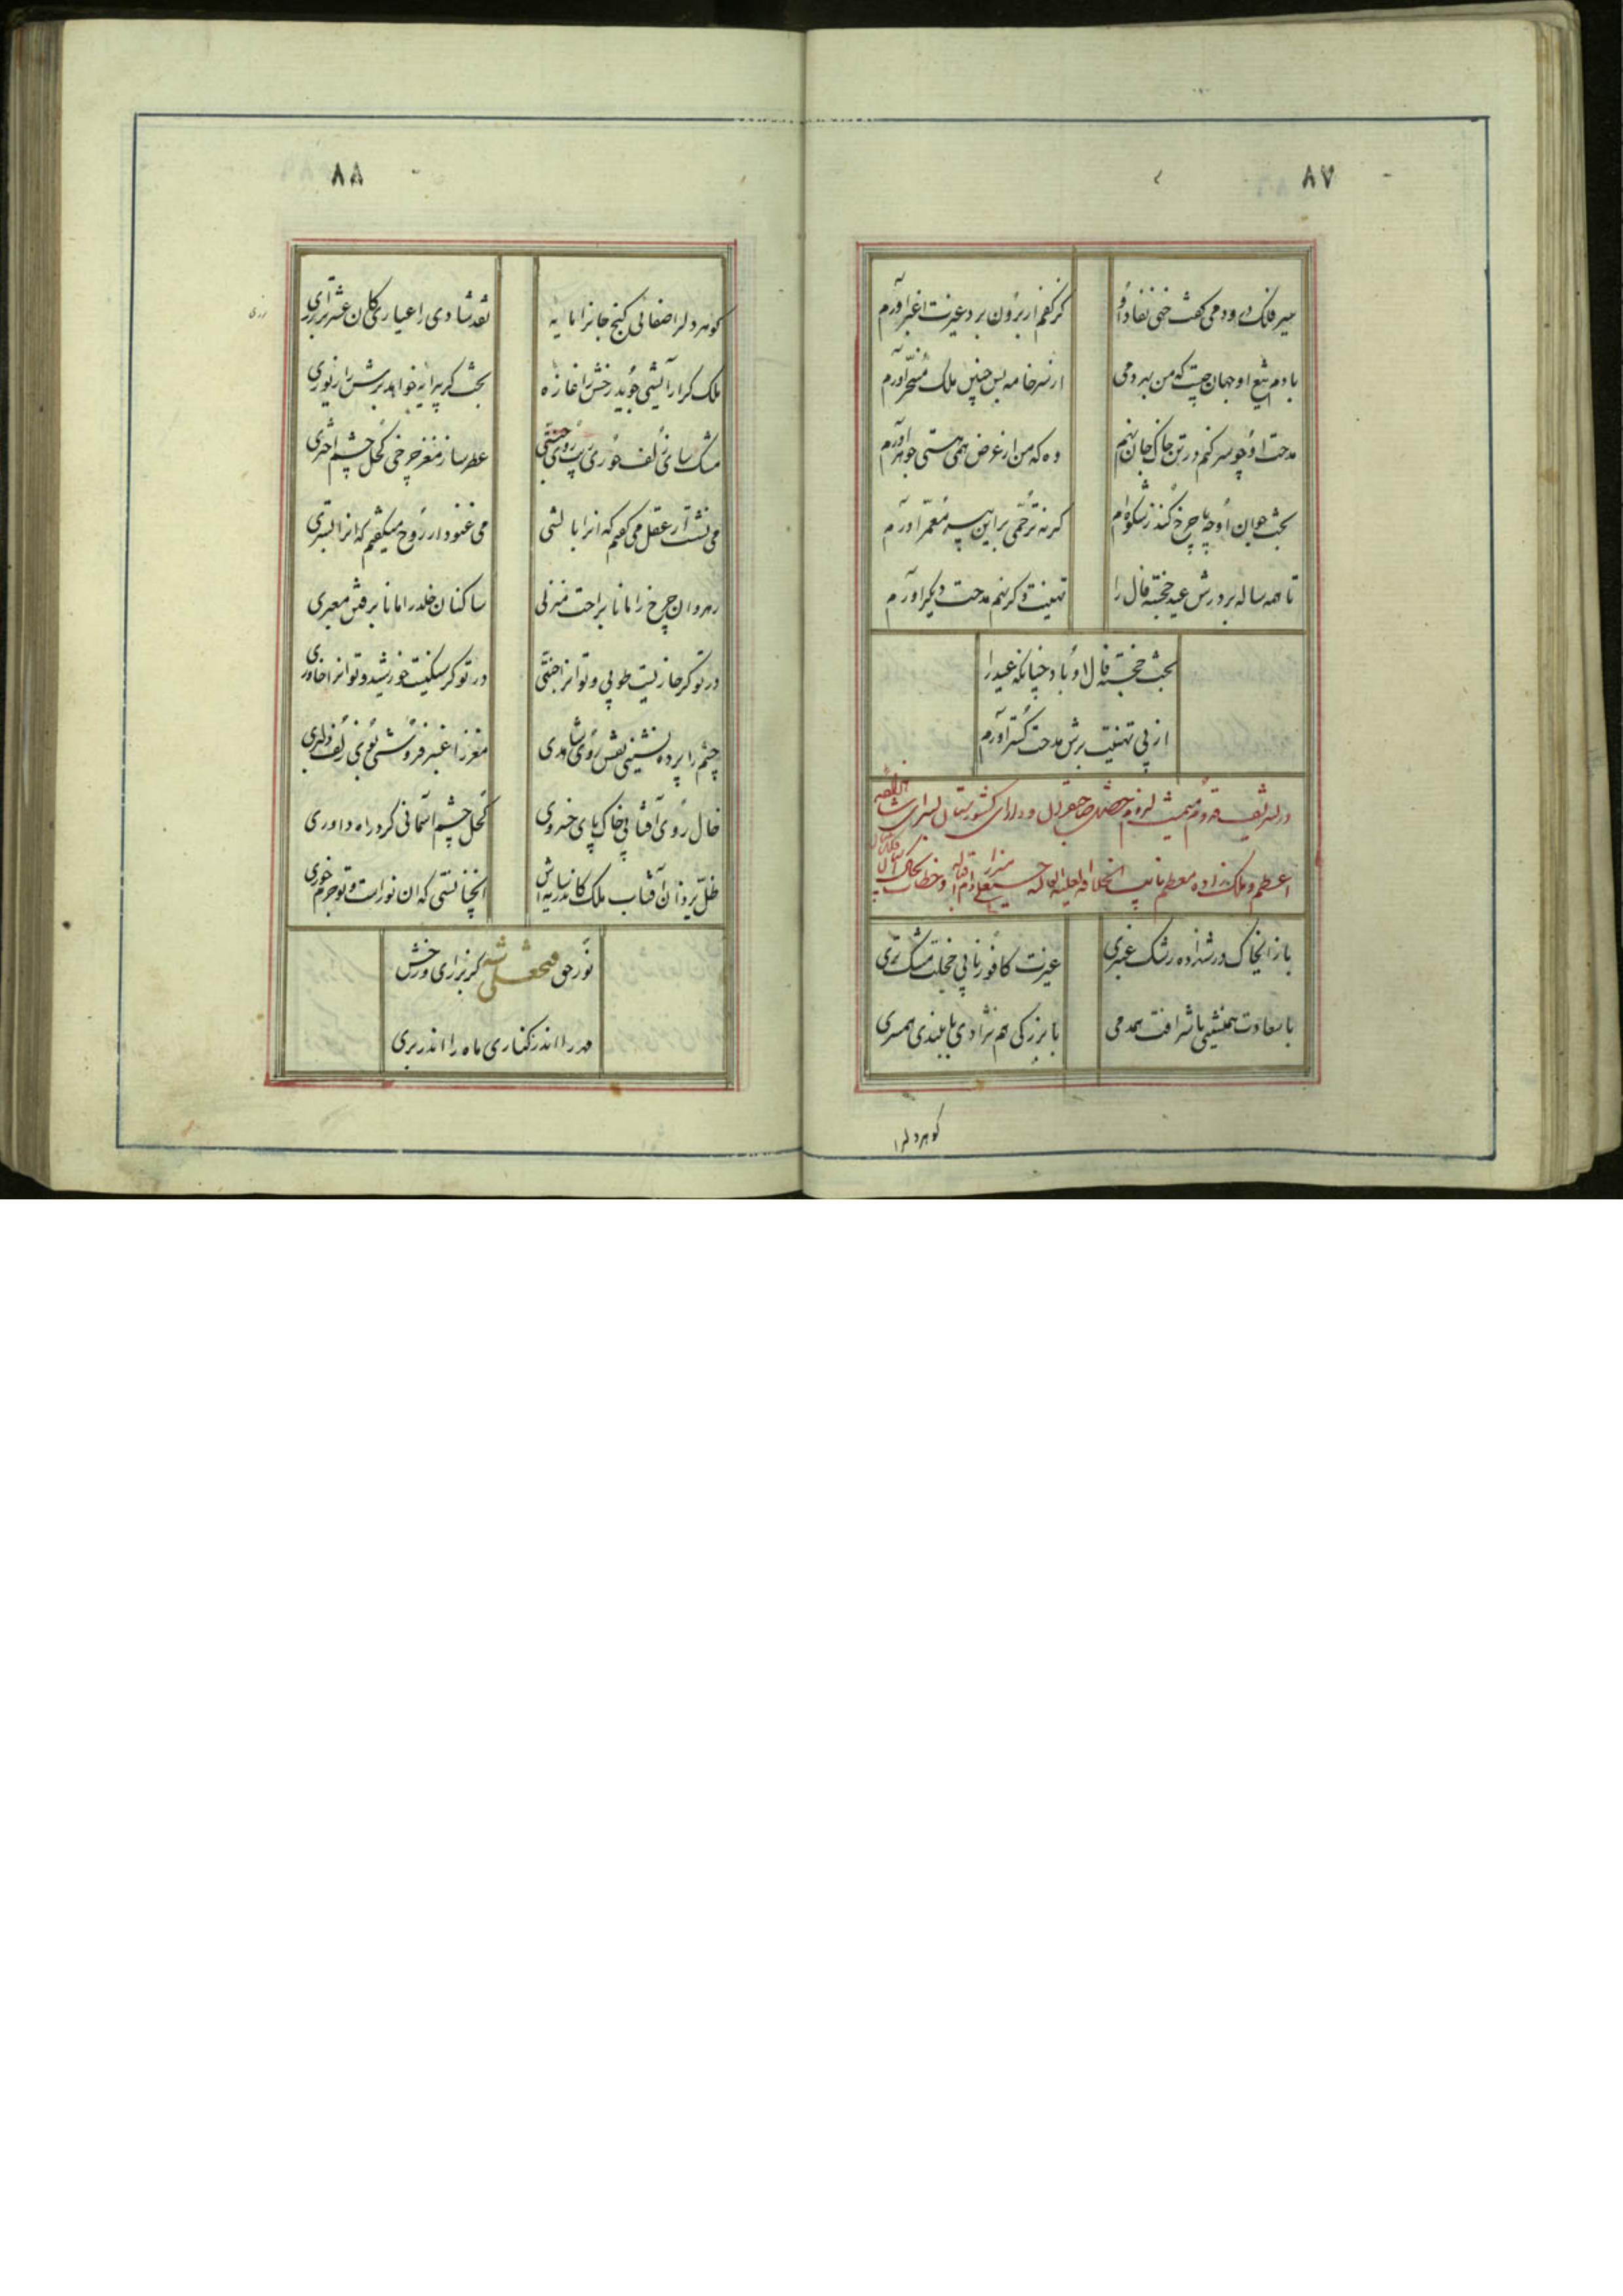 ۸۷
میر فلک دود همی گفت خهی نفاذ او
گر کفم از برون برد غیرت اغبر آورم
با دم تیغ او جهان چیست که من بهر دمی
از سر خامه بس چنین ملک مسخر آورم
مدحت او چو سر کنم در تن خاک جان نهم
وه که من از عرض همی هستی جوهر آورم
بخت جوان او چه با چرخ کند ز شکوه ام
گرنه ترحمی بر این پیر معمر آورم
تا همه ساله بر درش عید خجسته فال را
تهنیت دگر نهم مدحت دیگر آورم
بخت خجسته فال او باد چنانکه عید را
از پی تهنیت برش مدحت گستر آورم
اعظم و ملک زاده معظم نایب الخلافه العلیه العالیه حسینعلی میرزا دام اقباله و خطاب بخاک
باز ای خاک در شهزاده رشک عنبری
غیرت کافور نابی خجلت مشک تری
با سعادت همنشینی با شرافت همدمی
با بزرگی هم نژادی با بلندی همسری
گوهر دلرا
۸۸
گوهر دلرا صفائی گنج جانرا مایه
نقد شادی را عیاری کان عشرت را زری
زری
ملک گر آرایشی جوید رخش را غازه
بخت گر پیرایه خواهد برش را زیوری
مشک سای زلف حوری
عطر ساز مغز چرخی کحل چشم اختری
می نشست ار عقل می گفتم که آنرا بالشی
می غنود ار روح میگفتم که آنرا بستری
رهروان چرخ را مانا براحت منزلی
ساکنان خلد را مانا برفتن معبری
در تو گر جا نیست طوبی و تو آنرا جنتی
در تو گر سکنیست خورشید و تو آنرا خاوری
چشم را پرده نشینی نقش روی شاهدی
مغز را عنبر فروشی بوی زلف دلبری
خال روی آفتابی خاک پای خسروی
کحل چشم آسمانی گرد راه داوری
ظل یزدان آفتاب ملک کاندر سایه اش
آنچنانستی که آن نور است و تو جرم خوری
نور حق فتحعلی شه کز برای و رخش
مهر را اندر کناری ماه را اندر بری